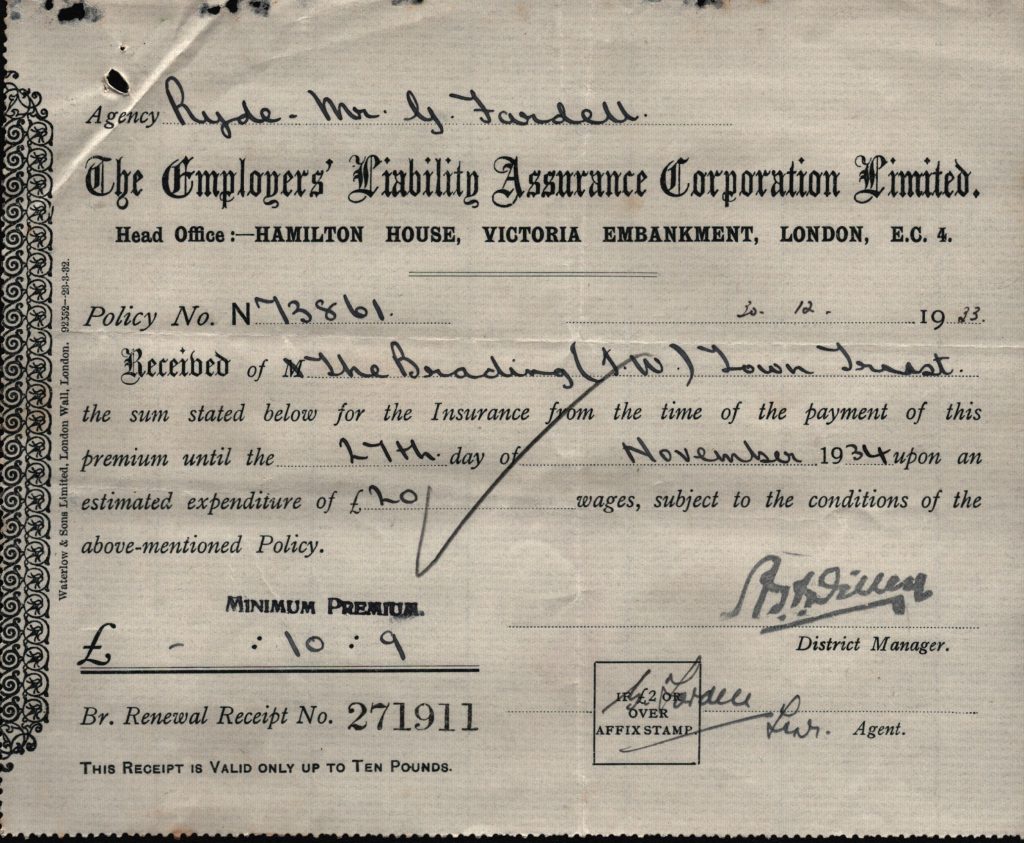 Agency Ryde - Mr. G. Fardell.
The Employers' Liability Assurance Corporation Limited.
Head Office:—HAMILTON HOUSE, VICTORIA EMBANKMENT, LONDON, E.C. 4.
Policy No. N 73861. 30. 12. 1933.
Received of The Brading (I.W.) Town Trust.
the sum stated below for the Insurance from the time of the payment of this
premium until the 27th. day of November 1934 upon an
estimated expenditure of £20 wages, subject to the conditions of the
above-mentioned Policy.
MINIMUM PREMIUM.
£ - : 10 : 9
District Manager.
IF £2 OR
OVER
AFFIX STAMP.
G. Fardell
Agent.
Br. Renewal Receipt No. 271911
THIS RECEIPT IS VALID ONLY UP TO TEN POUNDS.
Waterlow & Sons Limited, London Wall, London. 92552—23-3-32.